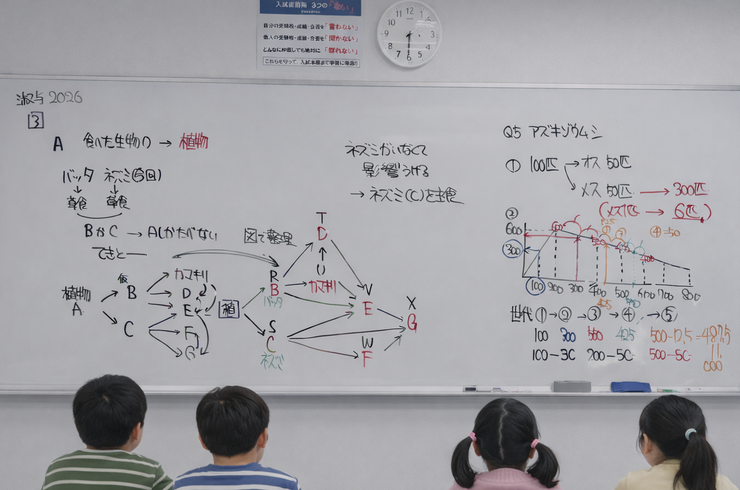 入試直前期 3つの「ない」
自分の受験校・成績・合否を「言わない」
他人の受験校・成績・合否を「聞かない」
どんなに仲良しでも絶対に「群れない」
淑与 2026
3
A 食べた生物ワ → 植物
バッタ ネズミ(毎回)
草食 草食
BかC → Aしかたべない
てきとー
図で整理
植物
A
仮
B
C
カマキリ
D
E
F
G
植
R
B
バッタ
S
C
ネズミ
T
D
U
カマキリ
V
E
W
F
X
G
ネズミがいなくて
影響うける
→ ネズミ(C)を主食
Q5 アズキゾウムシ
① 100匹 → オス 50匹
メス 50匹 → 300匹
(メス1匹 → 6匹)
②
600
300
④=50
100 200 300 400 500 600 700 800
世代 ①→②→③→④→⑤
100 300 500 425 500-12.5=487.5
100-3C 200-5C 500-5C